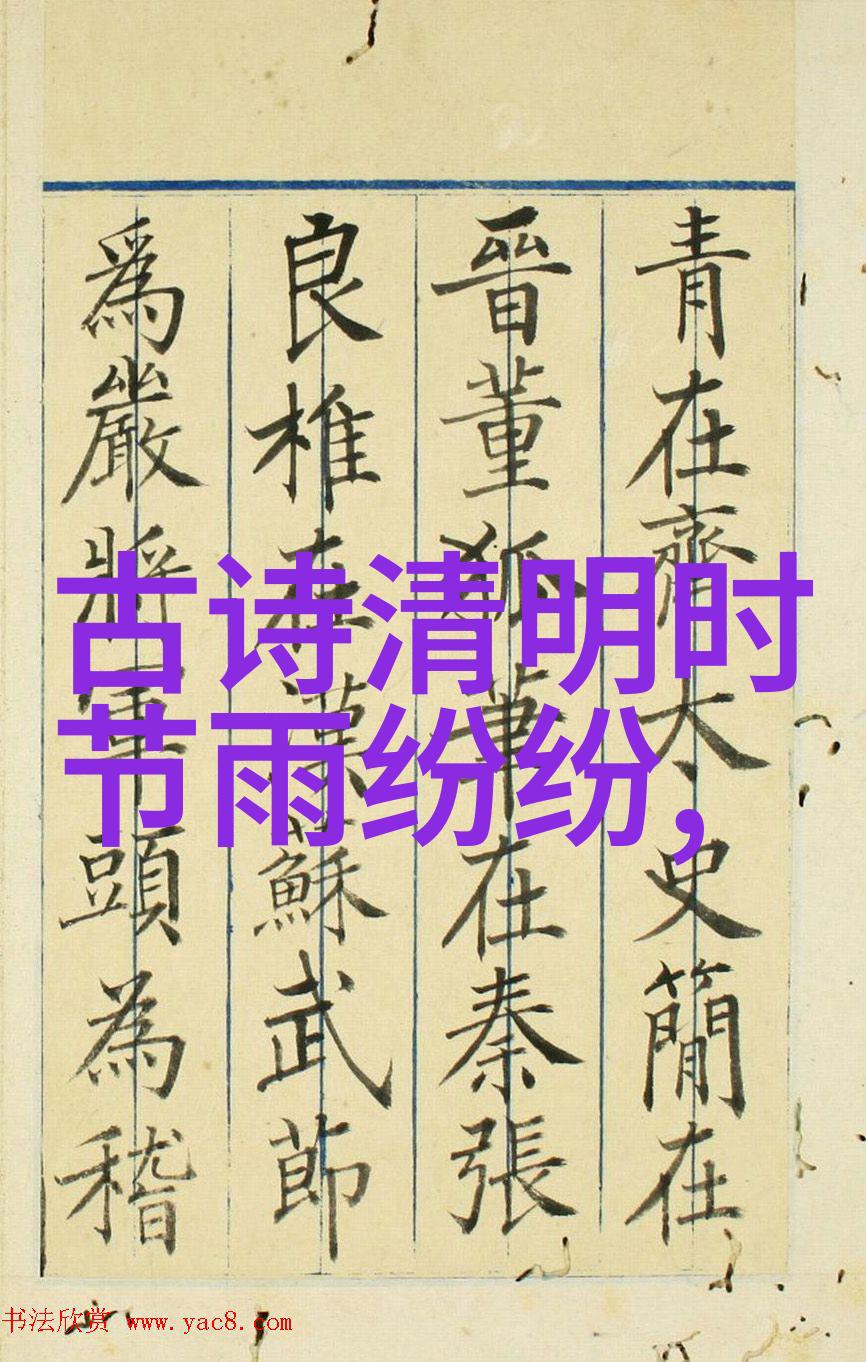 青在齊太史簡在
晉董狐筆在秦張
良椎在漢蘇武節
爲嚴將軍頭為稽
古诗清明时
节雨纷纷，
书法欣赏 www.yac8.com